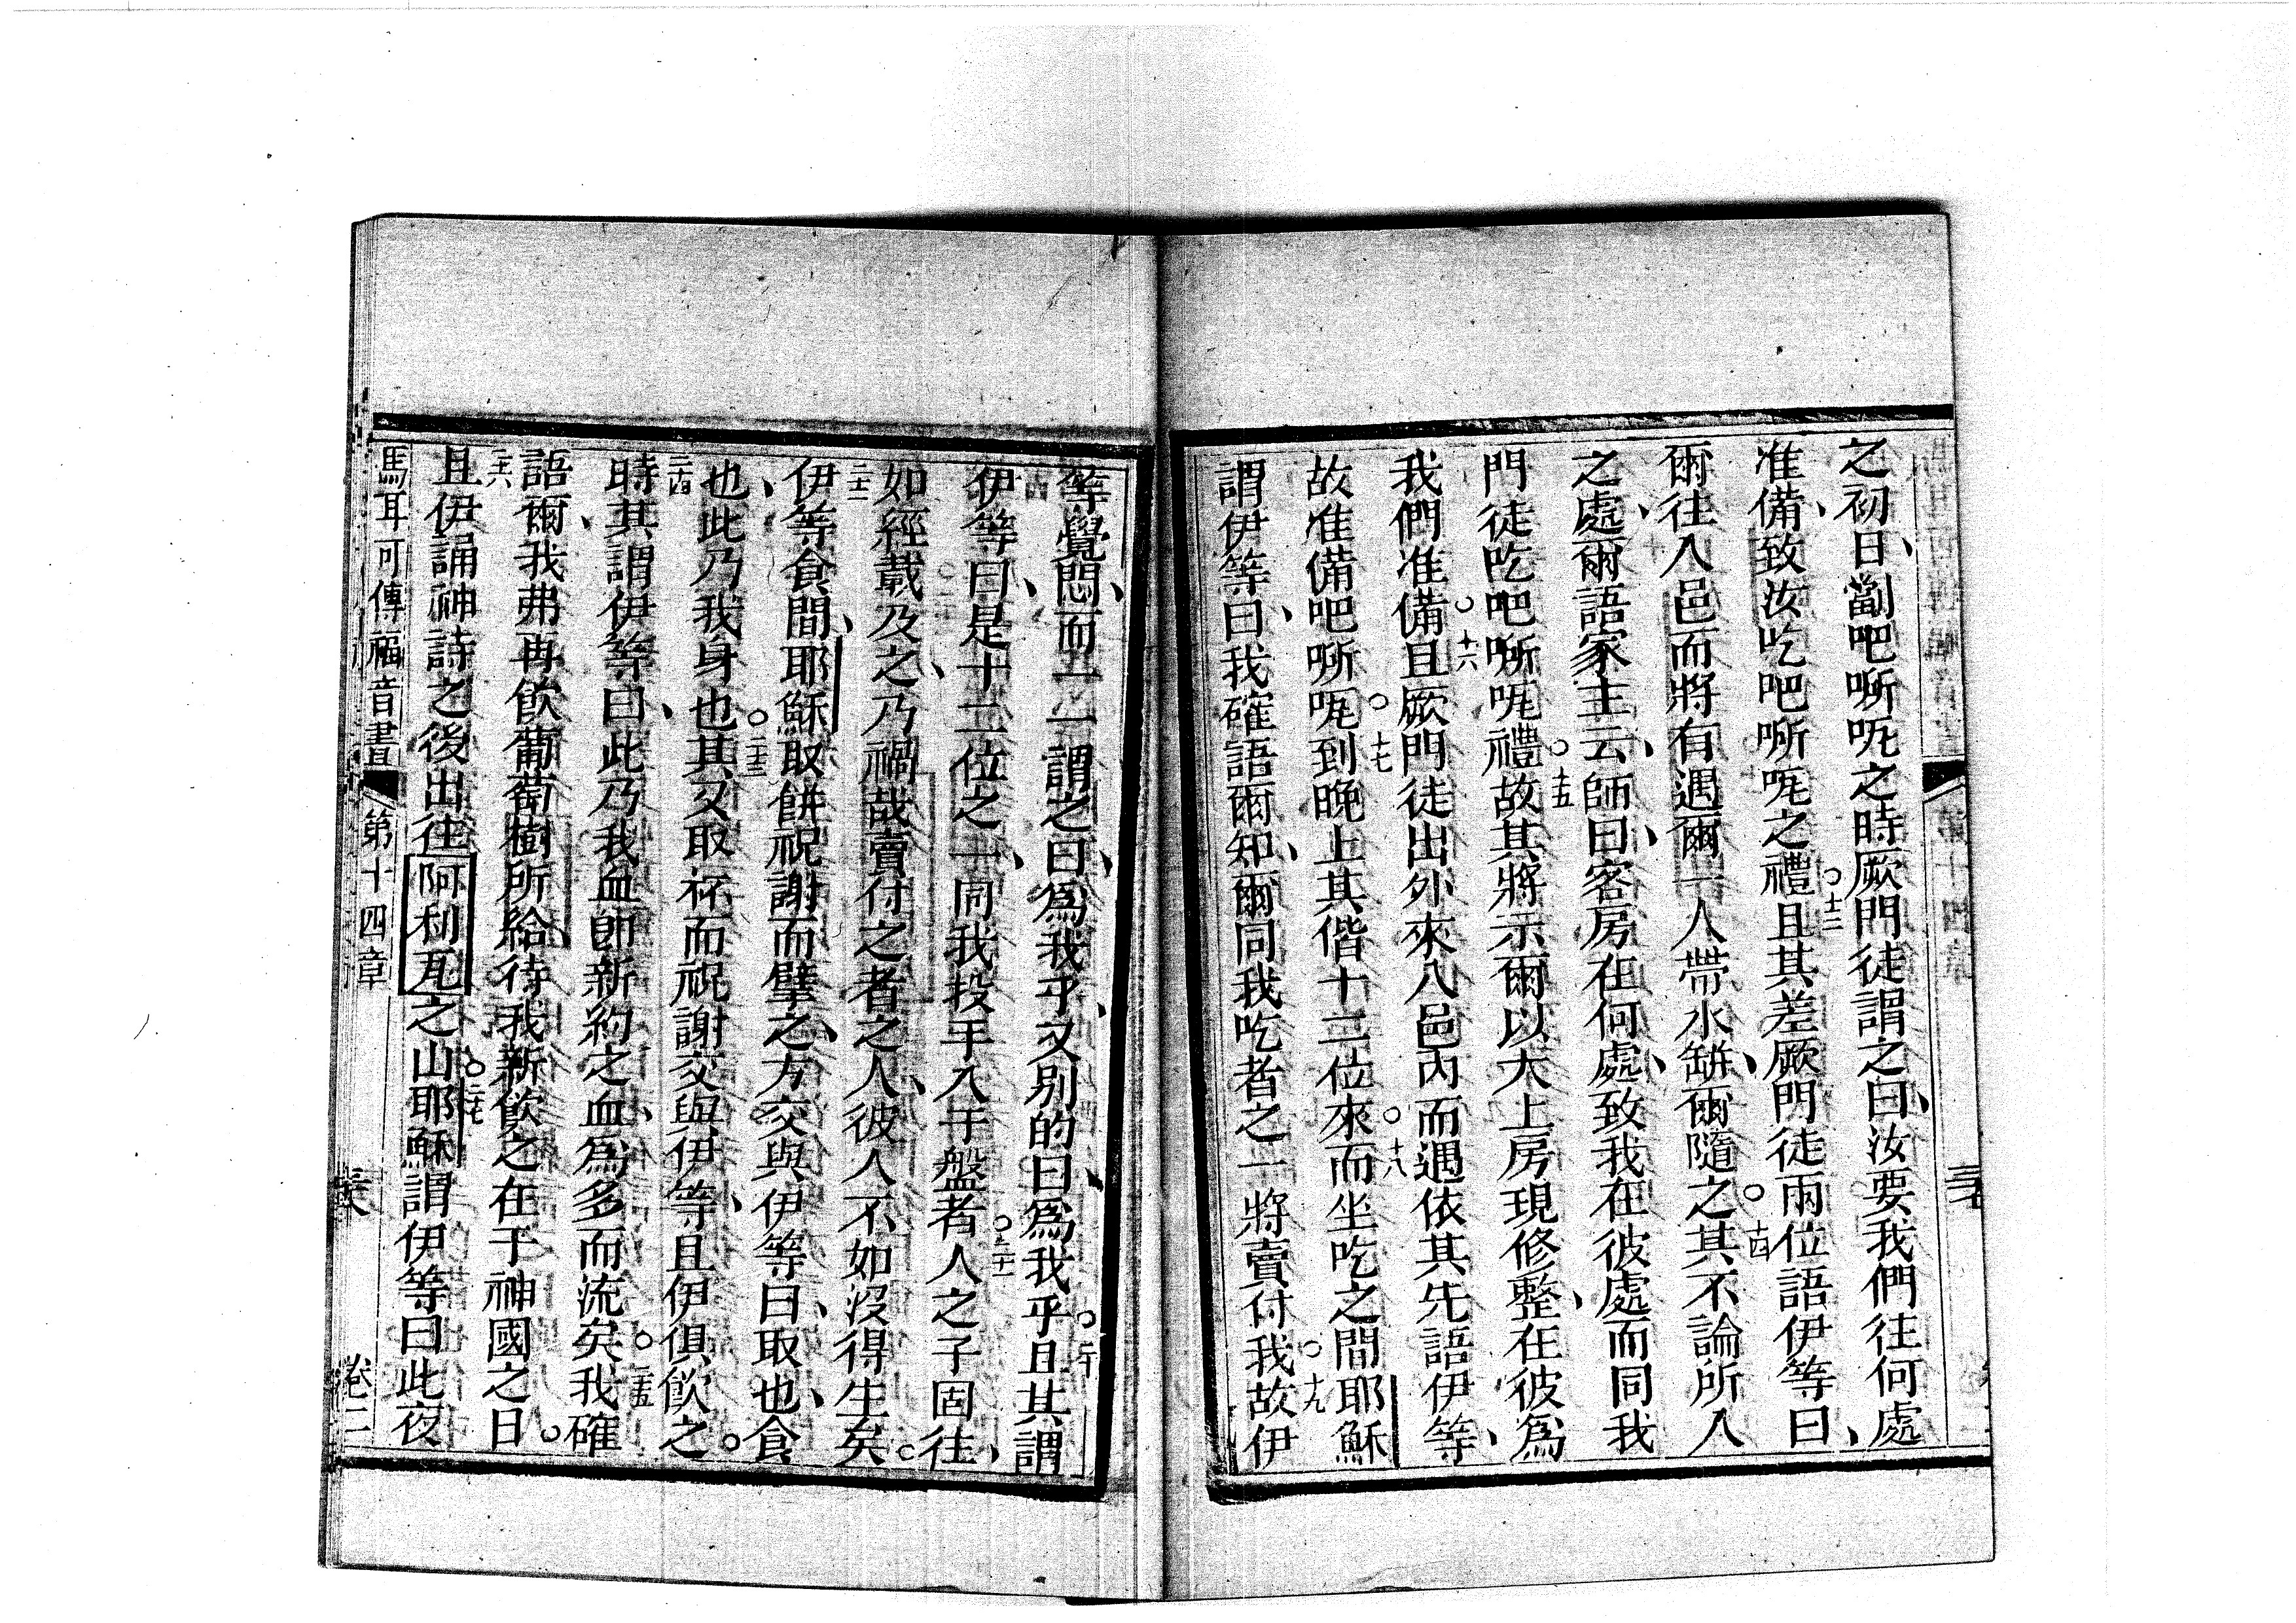 之初日、劏吧㗭呢之時厥門徒謂之曰、汝要我們往何處
准備、致汝吃吧㗭呢之禮○十三且其差厥門徒兩位語伊等曰、
爾往入邑而將有遇爾一人帶水缾、爾隨之○十四其不論所入
之處、爾語家主云、師曰、客房在何處、致我在彼處而同我
門徒吃吧㗭呢禮○十五故其將示爾以大上房現修整、在彼爲
我們准備○十六且厥門徒出外來入邑內而遇依其先語伊等、
故准備吧㗭呢○十七到晚上其偕十二位來○十八而坐吃之間耶穌
謂伊等曰、我確語爾知、爾同我吃者之一將賣付我○十九故伊
等覺悶、而一一謂之曰、爲我乎、又别的曰、爲我乎○二十且其謂
伊等曰、是十二位之一、同我投手入于盤者○二十一人之子固往、
如經載及之、乃禍哉賣付之者之人、彼人不如沒得生矣○
二十二伊等食間、耶穌取餅祝謝而擘之、方交與伊等曰、取也、食
也、此乃我身也○二十三其又取杯而祝謝交與伊等、且伊俱飲之。
二十四時其謂伊等曰、此乃我血卽新約之血、爲多而流矣○二十五我確
語爾、我弗再飲葡萄樹所給待我新飲之在于神國之日。
二十六且伊誦神詩之後出往阿利瓦之山○二十七耶穌謂伊等曰此夜
馬耳可傳福音書 第十四章 卷二